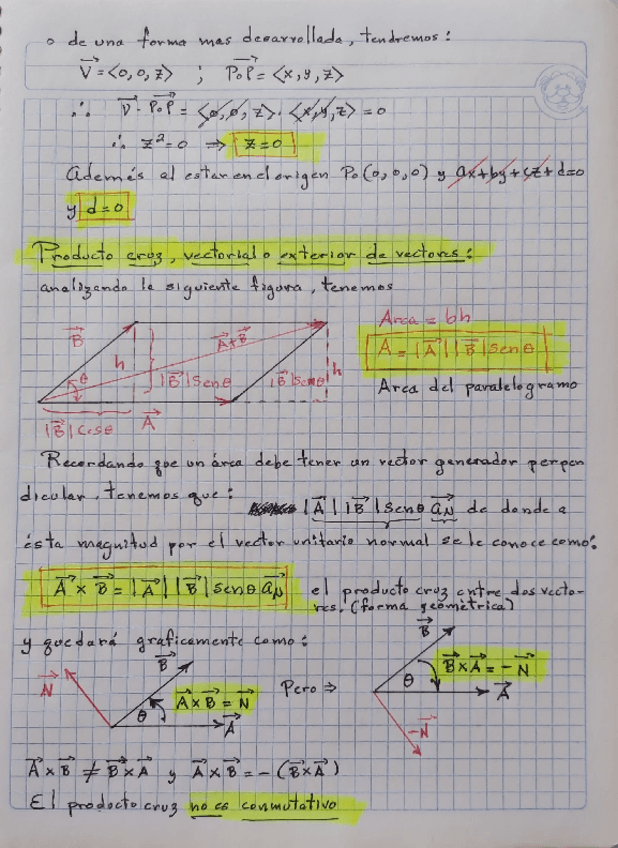 o de una forma mas desarrollada, tendremos:
V⃗ = <0, 0, z> ; P₀P⃗ = <x, y, z>
∴ V⃗ · P₀P⃗ = <0, 0, z> · <x, y, z> = 0
∴ z² = 0 ⇒ z = 0
Además al estar en el origen P₀(0,0,0) y ax+by+cz+d=0
y d=0
Producto cruz, vectorial o exterior de vectores:
analizando la siguiente figura, tenemos
B⃗
h
θ
|B⃗|Senθ
A⃗+B⃗
|B⃗|Senθ
h
|B⃗|Cosθ
A⃗
Area = bh
A = |A⃗| |B⃗| Senθ
Area del paralelogramo
Recordando que un área debe tener un vector generador perpen
dicular, tenemos que:
|A⃗| |B⃗| Senθ a⃗N de donde a
ésta magnitud por el vector unitario normal se le conoce como:
A⃗ × B⃗ = |A⃗| |B⃗| senθ a⃗N
el producto cruz entre dos vecto-
res. (forma geométrica)
y quedará graficamente como:
N⃗
B⃗
θ
A⃗ × B⃗ = N⃗
A⃗
Pero ⇒
B⃗
B⃗ × A⃗ = -N⃗
θ
A⃗
-N⃗
A⃗ × B⃗ ≠ B⃗ × A⃗ y A⃗ × B⃗ = -(B⃗ × A⃗)
El producto cruz no es conmutativo